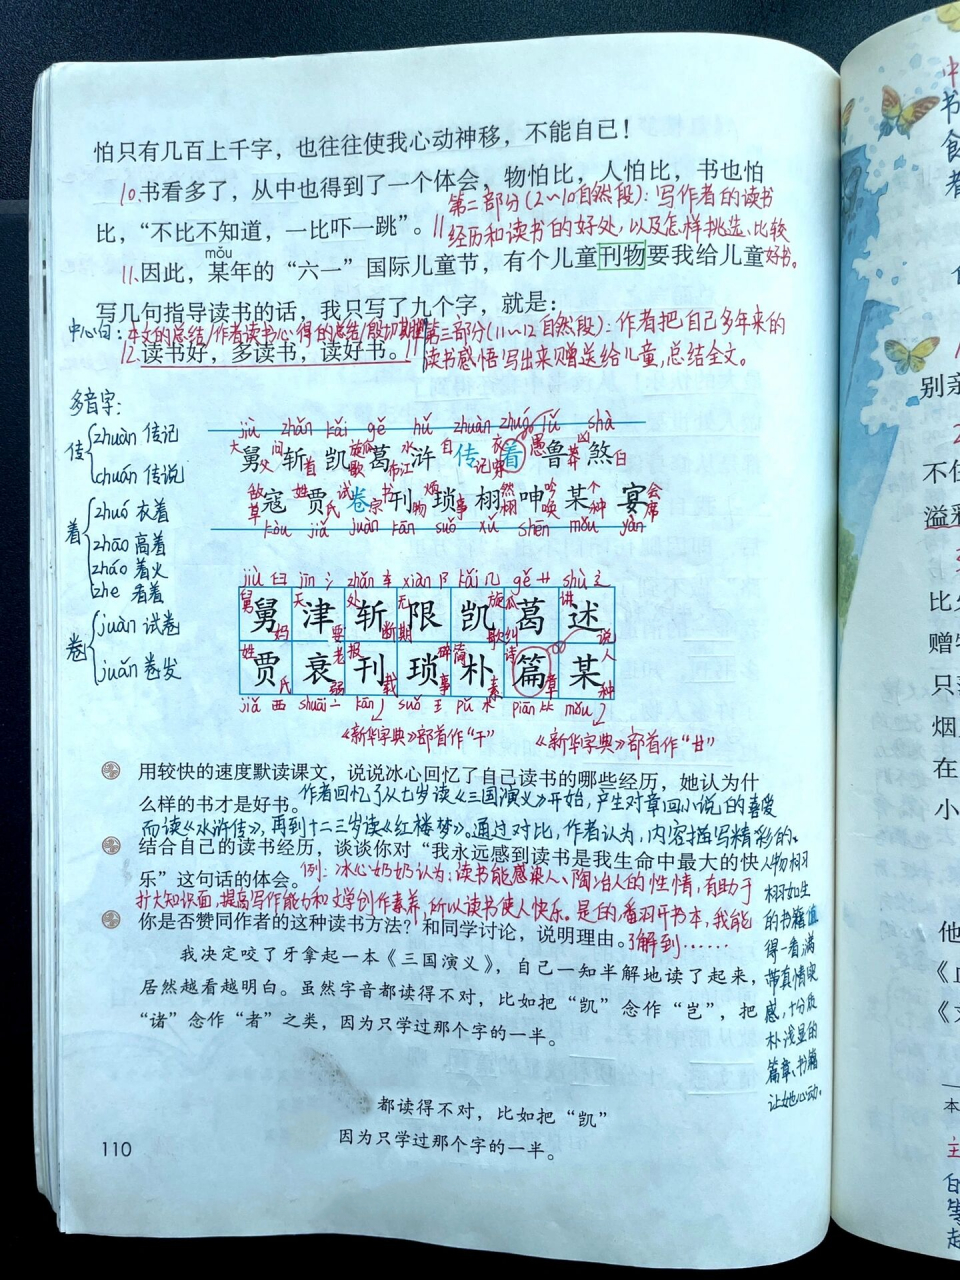 怕只有几百上千字，也往往使我心动神移，不能自已！
10.书看多了，从中也得到了一个体会，物怕比，人怕比，书也怕
第二部分(2～10自然段)：写作者的读书
比，“不比不知道，一比吓一跳”。
经历和读书的好处，以及怎样挑选、比较
好书。
mǒu
11.因此，某年的“六一”国际儿童节，有个儿童刊物要我给儿童
写几句指导读书的话，我只写了九个字，就是：
中心句：本文的总结/作者读书心得的总结/殷切期望
第三部分(11～12自然段)：作者把自己多年来的
12.读书好，多读书，读好书。
读书感悟写出来赠送给儿童，总结全文。
多音字：
传
zhuàn 传记
chuán 传说
着
zhuó 衣着
zhāo 高着
zháo 着火
zhe 看着
卷
juàn 试卷
juǎn 卷发
jiù zhǎn kǎi gě hǔ zhuàn zhuó lǔ shà
舅 斩 凯 葛 浒 传 着 鲁 煞
寇 贾 卷 刊 琐 栩 呻 某 宴
kòu jiǎ juàn kān suǒ xǔ shēn mǒu yàn
jiù 臼 jīn 氵 zhǎn 车 xiàn 阝 kǎi 几 gě 艹 shù 辶
舅 津 斩 限 凯 葛 述
贾 衰 刊 琐 朴 篇 某
jiǎ 西 shuāi 亠 kān suǒ 王 pǔ 木 piān 竹 mǒu
《新华字典》部首作“干”
《新华字典》部首作“甘”
用较快的速度默读课文，说说冰心回忆了自己读书的哪些经历，她认为什
么样的书才是好书。
作者回忆了从七岁读《三国演义》开始，产生对章回小说的喜爱
而读《水浒传》，再到十二三岁读《红楼梦》。通过对比，作者认为，内容描写精彩的、
人物栩
栩如生
的书籍值
得一看，满
带真情实
感，十分质
朴浅显的
篇章、书籍
让她心动。
结合自己的读书经历，谈谈你对“我永远感到读书是我生命中最大的快
乐”这句话的体会。
例：冰心奶奶认为：读书能感染人、陶冶人的性情，有助于
扩大知识面，提高写作能力和文学创作素养，所以读书使人快乐。是的，翻开书本，我能
了解到……
你是否赞同作者的这种读书方法？和同学讨论，说明理由。
我决定咬了牙拿起一本《三国演义》，自己一知半解地读了起来，
居然越看越明白。虽然字音都读得不对，比如把“凯”念作“岂”，把
“诸”念作“者”之类，因为只学过那个字的一半。
都读得不对，比如把“凯”
因为只学过那个字的一半。
110
别亲
不住
溢彩
比父
赠牧
只落
烟
在
小
他